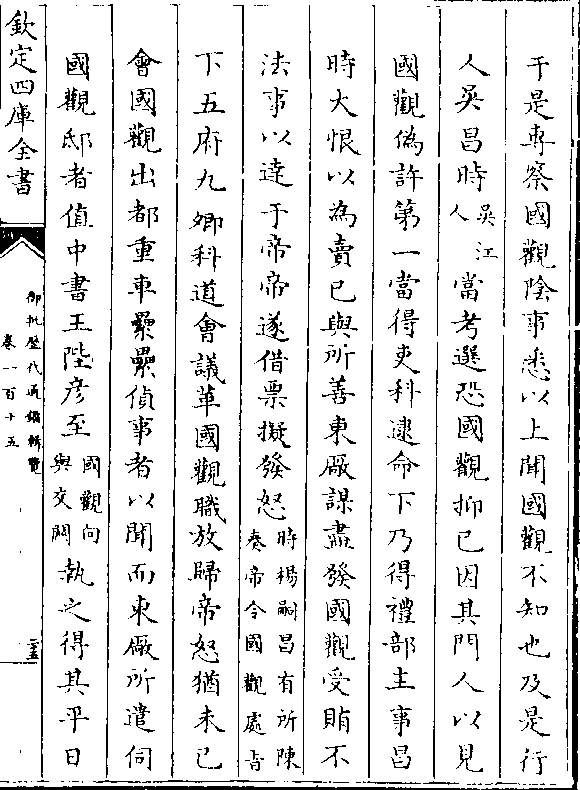 于是専察國觀陰事悉以上聞國觀不知也及是行
人吳昌時吳江人當考選恐國觀抑已因其門人以見
國觀偽許第一當得吏科逮命下乃得禮部主事昌
時大恨以為賣已與所善東厰謀盡發國觀受賄不
法事以達于帝帝遂借票擬發怒時楊嗣昌有所陳奏帝令國觀處旨
下五府九卿科道會議革國觀職放歸帝怒猶未已
會國觀出都重車纍纍偵事者以聞而東厰所遣伺
國觀邸者值中書王陛彦至國觀向與交關執之得其平日
欽定四庫全書
御批歷代通鑑輯覽
卷一百十五
三五